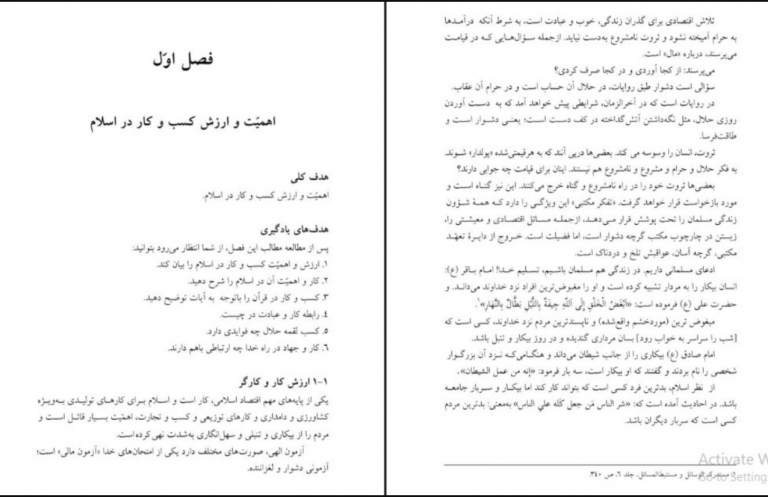 فصل اوّل
اهمیّت و ارزش کسب و کار در اسلام
هدف کلی
اهمیّت و ارزش کسب و کار در اسلام.
هدف‌های یادگیری
پس از مطالعه مطالب این فصل، از شما انتظار می‌رود بتوانید:
۱. ارزش و اهمیّت کسب و کار در اسلام را بیان کند.
۲. کار و اهمیت آن در اسلام را شرح دهید.
۳. کسب و کار در قرآن را باتوجه به آیات توضیح دهید.
۴. رابطه کار و عبادت در چیست.
۵. کسب لقمه حلال چه فوایدی دارد.
۶. کار و جهاد در راه خدا چه ارتباطی باهم دارند.
۱-۱ ارزش کار و کارگر
یکی از پایه‌های مهم اقتصاد اسلامی، کار است و اسلام برای کارهای تولیدی به‌ویژه
کشاورزی و دامداری و کارهای توزیعی و کسب و تجارت، اهمّیت بسیار قائل است و
مردم را از بیکاری و تنبلی و سهل‌انگاری به‌شدت نهی‌کرده است.
آزمون الهی، صورت‌های مختلف دارد یکی از امتحان‌های خدا «آزمون مالی» است؛
آزمونی دشوار و لغزاننده.
تلاش اقتصادی برای گذران زندگی، خوب و عبادت است، به شرط آنکه درآمدها
به حرام آمیخته نشود و ثروت نامشروع به‌دست نیاید. ازجمله سؤال‌هایی که در قیامت
می‌پرسند، درباره «مال» است.
می‌پرسند: از کجا آوردی و در کجا صرف کردی؟
سؤالی است دشوار طبق روایات، در حلال آن حساب است و در حرام آن عقاب.
در روایات است که در آخرالزمان، شرایطی پیش خواهد آمد که به دست آوردن
روزی حلال، مثل نگه‌داشتن آتش‌گداخته در کف دست است؛ یعنی دشوار است و
طاقت‌فرسا.
ثروت، انسان را وسوسه می کند. بعضی‌ها درپی آنند که به هرقیمتی‌شده «پولدار» شوند.
به فکر حلال و حرام و مشروع و نامشروع هم نیستند. اینان برای قیامت چه جوابی دارند؟
بعضی‌ها ثروت خود را در راه نامشروع و گناه خرج می‌کنند. این نیز گناه است و
مورد بازخواست قرار خواهد گرفت. «تفکر مکتبی» این ویژگی را دارد که همهٔ شؤون
زندگی مسلمان را تحت پوشش قرار می‌دهد، ازجمله مسائل اقتصادی و معیشتی را،
زیستن در چارچوب مکتب گرچه دشوار است، اما فضیلت است. خروج از دایرهٔ تعهّد
مکتبی، گرچه آسان، عواقبش تلخ و دردناک است.
ادعای مسلمانی داریم. در زندگی هم مسلمان باشیم، تسلیم خدا! امام باقر (ع):
انسان بیکار را به مردار تشبیه کرده است و او را مغبوض‌ترین افراد نزد خداوند می‌داند. و
حضرت علی (ع) فرموده است: «اَبْغَضُ الْخَلْقِ إِلَی اَللَّهِ جِیفَةٌ بِاللَّیْلِ بَطَّالٌ بِالنَّهَارِ»۱.
مبغوض ترین (موردخشم واقع‌شده) و ناپسندترین مردم نزد خداوند، کسی است که
[شب را سراسر به خواب رود] بسان مرداری گندیده و در روز بیکار و تنبل باشد.
امام صادق (ع) بیکاری را از جانب شیطان می‌داند و هنگامی‌که نزد آن بزرگوار
شخصی را نام بردند و گفتند که او بیکار است، سه بار فرمود: «إنه من عمل الشیطان».
از نظر اسلام، بدترین فرد کسی است که بتواند کار کند اما بیکار و سربار جامعه
باشد. در احادیث آمده است که: «شر الناس مَن جعل کَله علی الناس» به‌معنی: بدترین مردم
کسی است که سربار دیگران باشد.
۱. مستدرک الوسائل و مستنبط‌المسائل، جلد ۶، ص ۳۴۰.
Activate W
Go to Setting